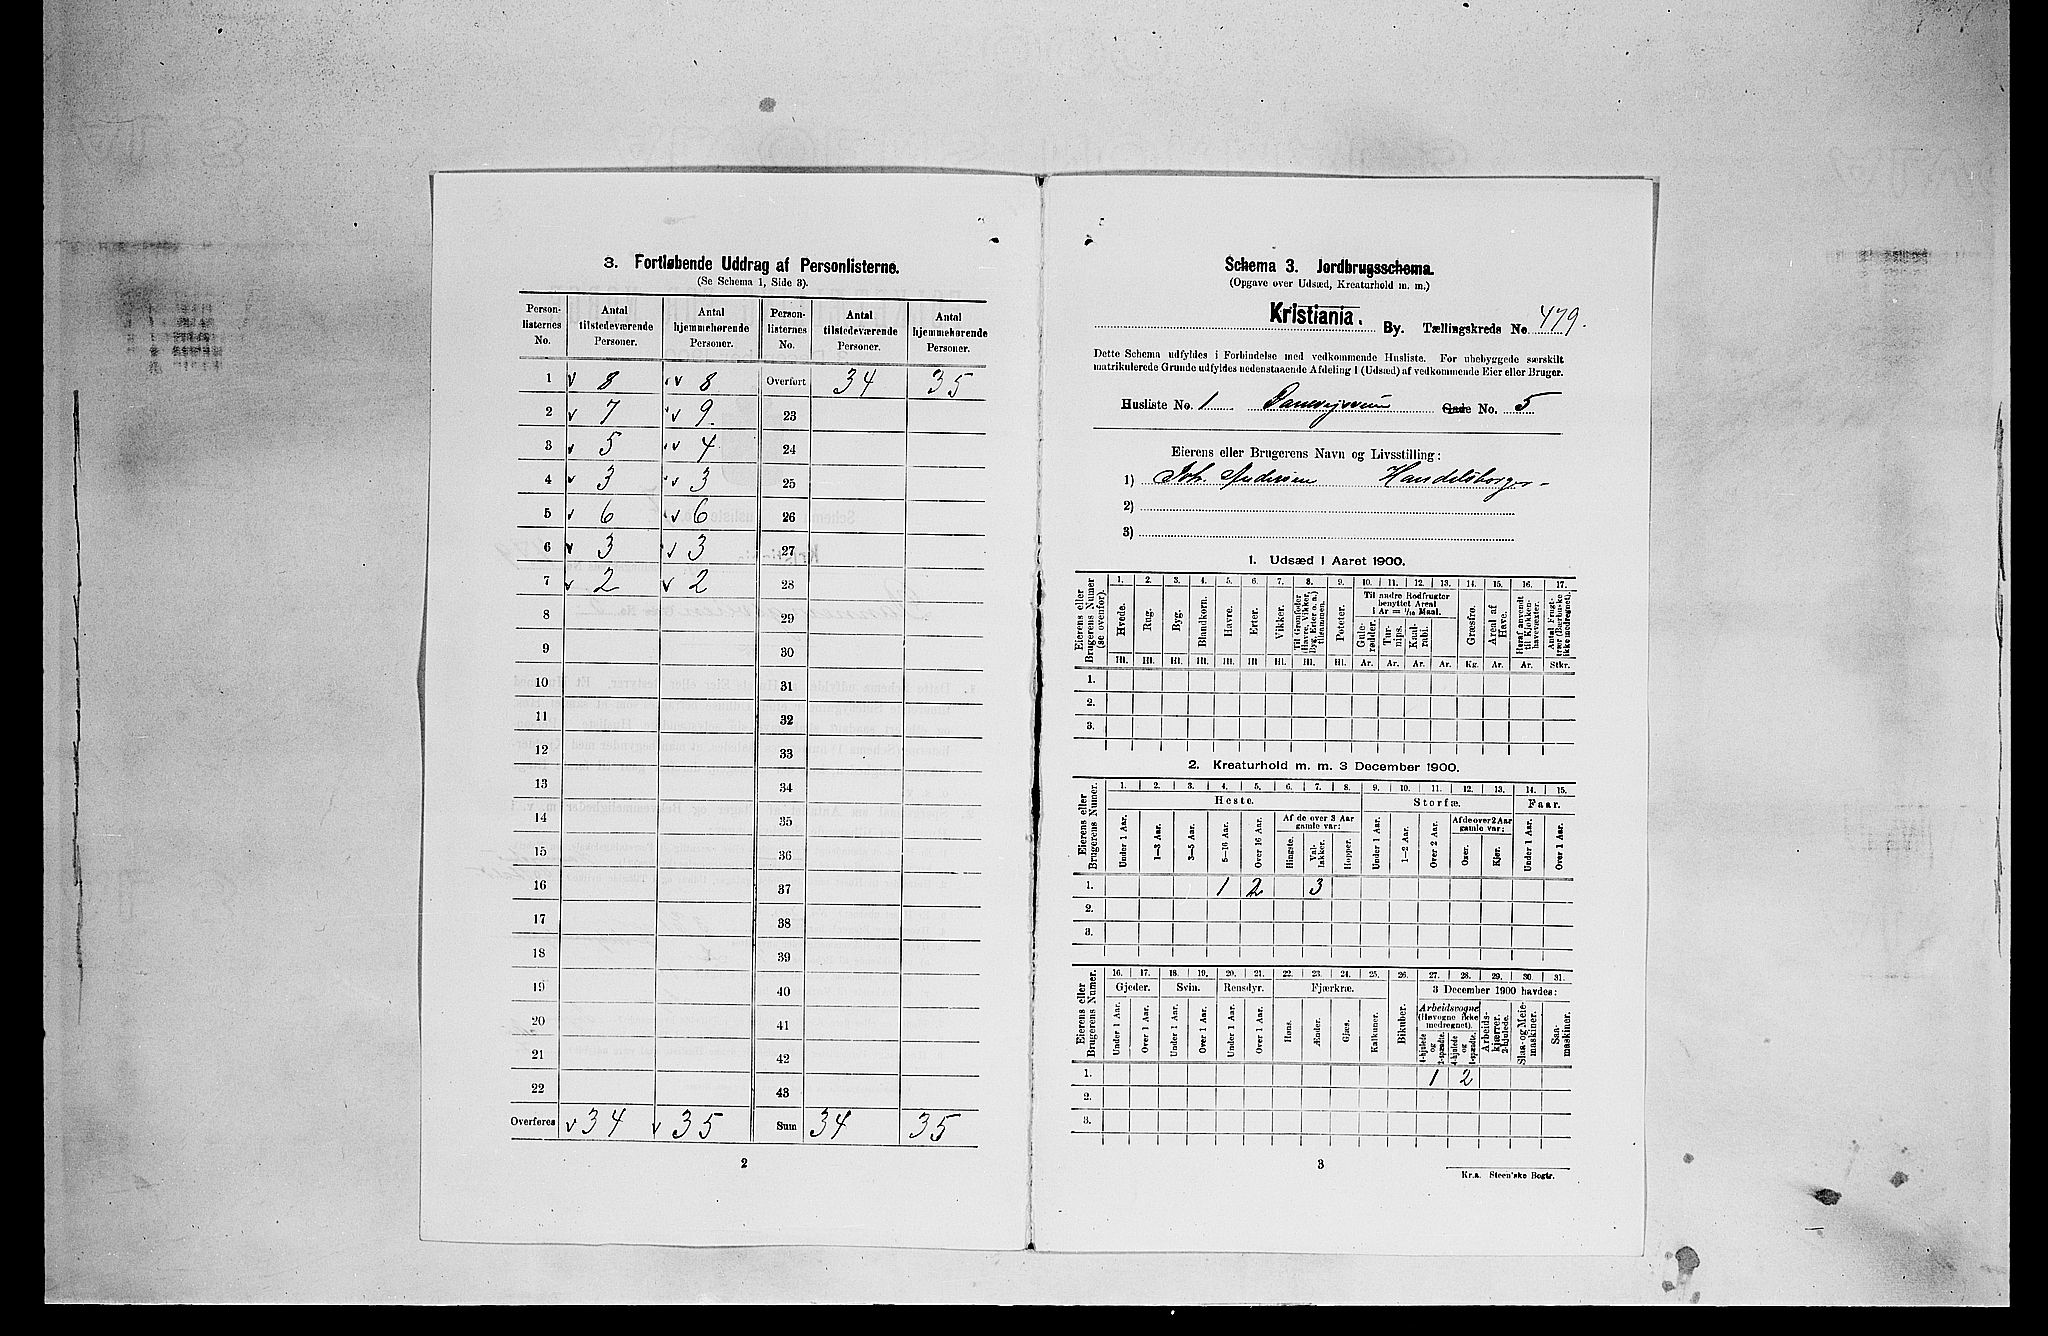 3. Fortløbende Uddrag af Personlisterne.
(Se Schema 1, Side 3).
Person-listernes No. | Antal tilstedeværende Personer. | Antal hjemmehørende Personer. | Person-listernes No. | Antal tilstedeværende Personer. | Antal hjemmehørende Personer.
1 v 8 v 8 Overført 34 35
2 v 7 v 9 23
3 v 5 v 4 24
4 v 3 v 3 25
5 v 6 v 6 26
6 v 3 v 3 27
7 v 2 v 2 28
8 29
9 30
10 31
11 32
12 33
13 34
14 35
15 36
16 37
17 38
18 39
19 40
20 41
21 42
22 43
Overføres v 34 v 35 Sum 34 35
2
Schema 3. Jordbrugsschema.
(Opgave over Udsæd, Kreaturhold m. m.)
Kristiania. By. Tællingskreds No. 479.
Dette Schema udfyldes i Forbindelse med vedkommende Husliste. For ubebyggede særskilt
matrikulerede Grunde udfyldes nedenstaaende Afdeling 1 (Udsæd) af vedkommende Eier eller Bruger.
Husliste No. 1 Gade No. 5
Eierens eller Brugerens Navn og Livsstilling:
1) Joh. Andersen Handelsborger
2)
3)
1. Udsæd i Aaret 1900.
Eierens eller Brugerens Numer (se ovenfor).
1. 2. 3. 4. 5. 6. 7. 8. 9. 10. 11. 12. 13. 14. 15. 16. 17.
Hvede. Rug. Byg. Blandkorn. Havre. Erter. Vikker. Til Grønfoder (Havre, Vikker, Byg, Erter o. a.) tilsammen. Poteter.
Til andre Rodfrugter benyttet Areal i Ar = 1/10 Maal.
Gulerødder. Turnips. Kaalrabi.
Græsfrø. Areal af Have. Heraf anvendt til Kjøkkenhavevæxter. Antal Frugttrær (Bærbuske ikke medregnet).
Hl. Hl. Hl. Hl. Hl. Hl. Hl. Hl. Hl. Ar. Ar. Ar. Ar. Kg. Ar. Ar. Stkr.
1.
2.
3.
2. Kreaturhold m. m. 3 December 1900.
Eierens eller Brugerens Numer.
1. 2. 3. 4. 5. 6. 7. 8. 9. 10. 11. 12. 13. 14. 15.
Heste. Storfæ. Faar.
Under 1 Aar. 1—3 Aar. 3—5 Aar. 5—16 Aar. Over 16 Aar. Af de over 3 Aar gamle var: Hingste. Vallakker. Hopper. Under 1 Aar. 1—2 Aar. Over 2 Aar. Af de over 2 Aar gamle var: Oxer. Kjør. Under 1 Aar. Over 1 Aar.
1. 1 2 3
2.
3.
Eierens eller Brugerens Numer.
16. 17. 18. 19. 20. 21. 22. 23. 24. 25. 26. 27. 28. 29. 30. 31.
Gjeder. Svin. Rensdyr. Fjærkræ. Bikuber. 3 December 1900 havdes:
Under 1 Aar. Over 1 Aar. Under 1 Aar. Over 1 Aar. Under 1 Aar. Over 1 Aar. Høns. Ænder. Gjæs. Kalkuner. Arbeidsvogne (Høvogne ikke medregnet). 4-hjulede og 2-spændte. 4-hjulede og 1-spændte. Arbeidskjærrer, 2-hjulede. Slaa- og Meiemaskiner. Saamaskiner.
1. 1 2
2.
3.
3
Kr.a. Steen'ske Bogtr.